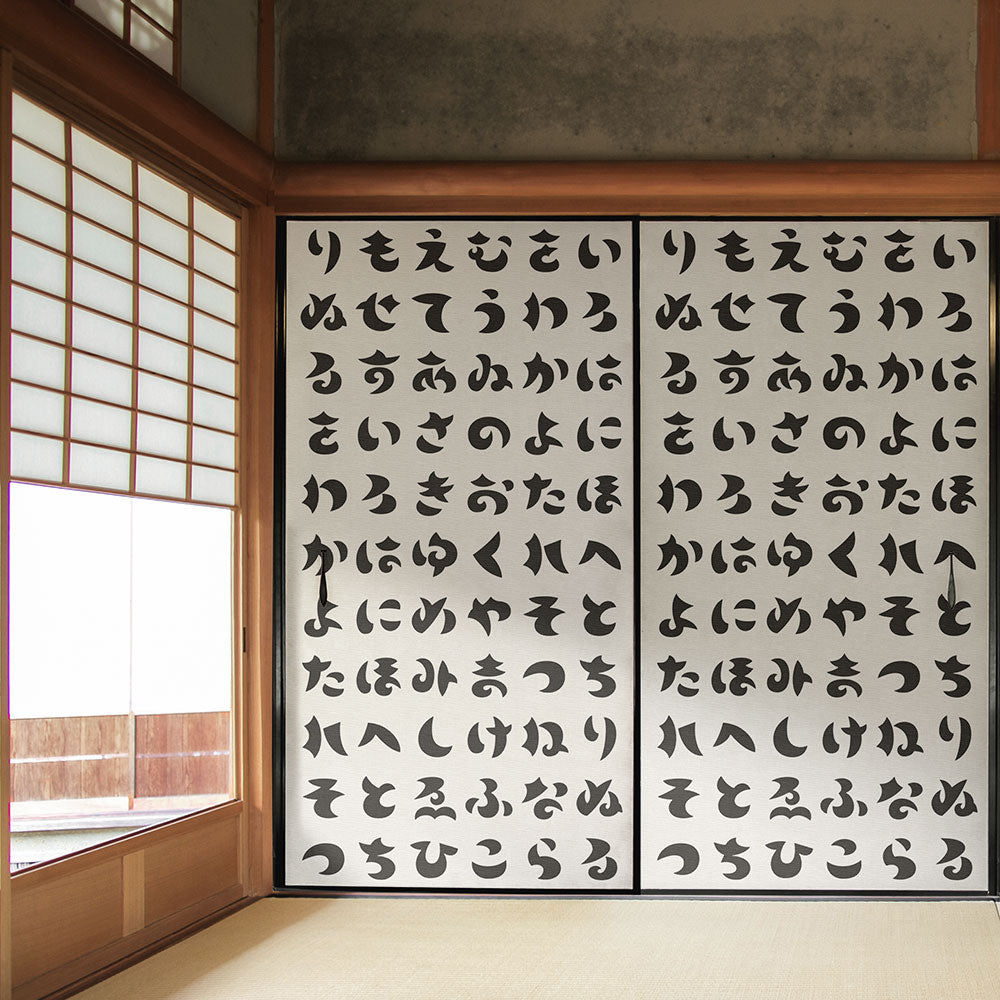 いろはにほへとちりぬる
をわかよたれそつねなら
むうゐのおくやまけふこ
えてあさきゆめみしゑひ
もせすいろはにほへとち
りぬるをわかよたれそつ
いろはにほへとちりぬる
をわかよたれそつねなら
むうゐのおくやまけふこ
えてあさきゆめみしゑひ
もせすいろはにほへとち
りぬるをわかよたれそつ